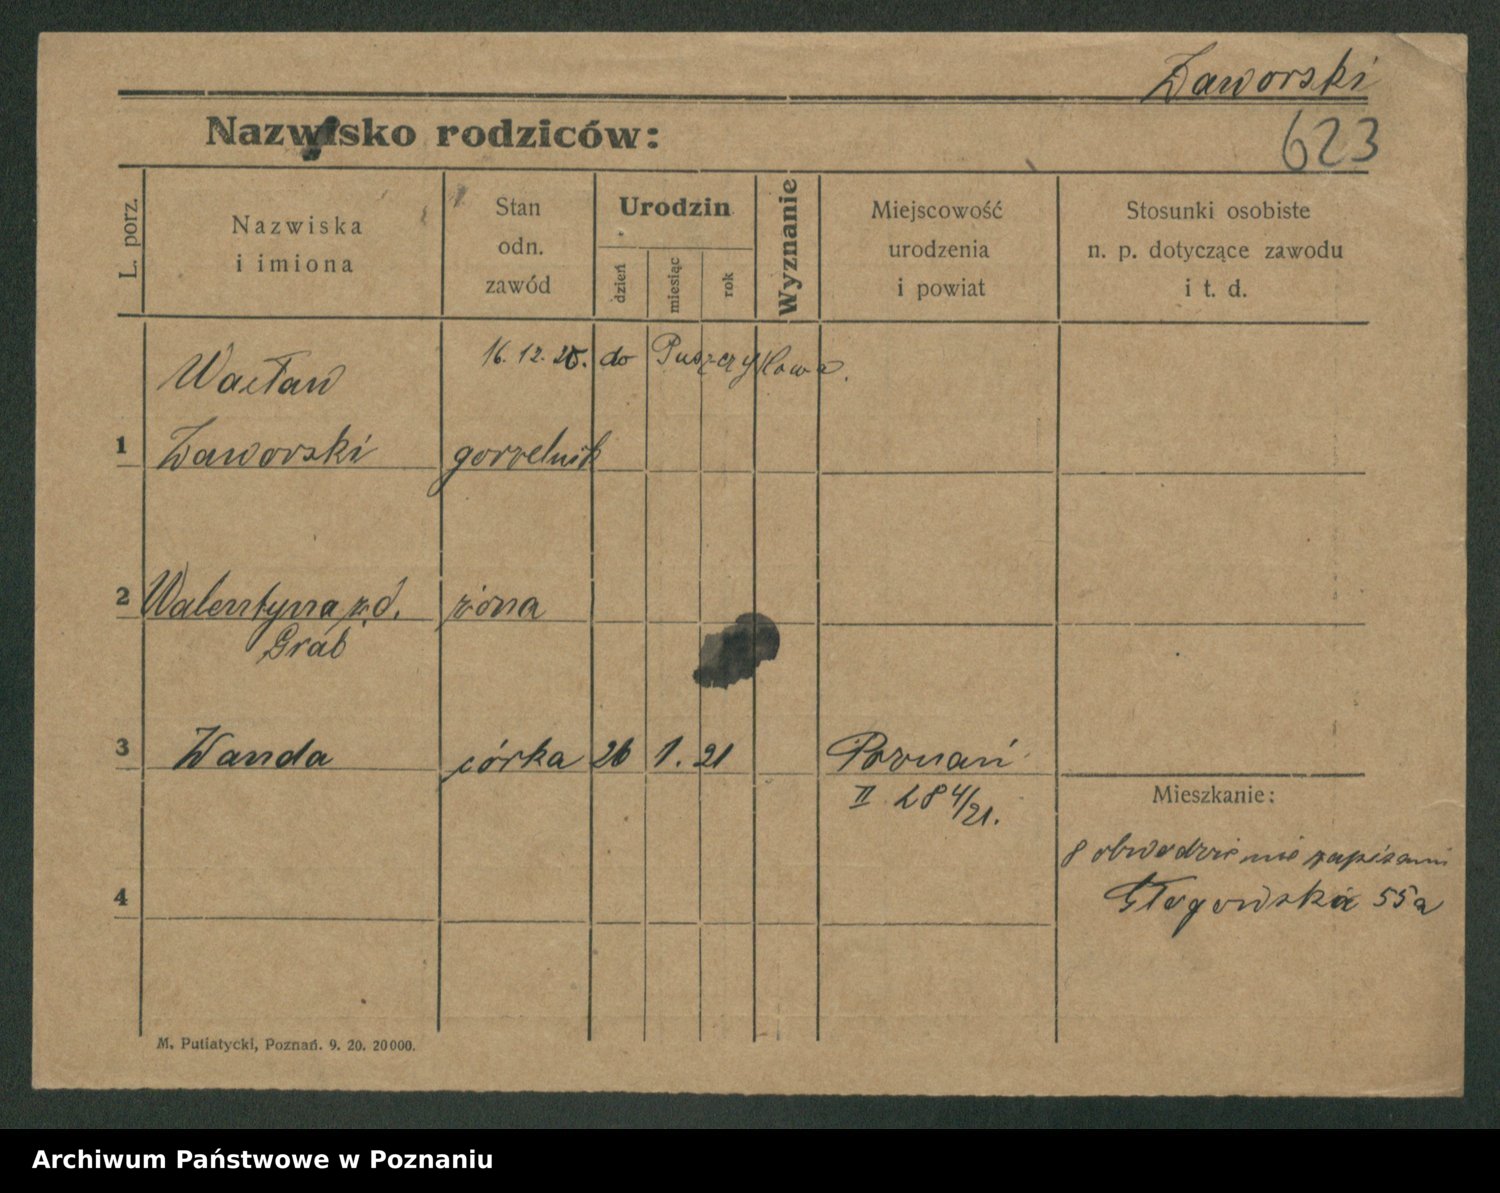 Zaworski
Nazwisko rodziców:
623
L. porz.
Nazwiska
i imiona
Stan
odn.
zawód
Urodzin
dzień
miesiąc
rok
Wyznanie
Miejscowość
urodzenia
i powiat
Stosunki osobiste
n. p. dotyczące zawodu
i t. d.
16. 12. do Puszczykowa.
Wacław
1 Zaworski gorzelnik
2 Walentyna z d. żona
Grab
3 Wanda córka 26 1. 21 Poznań
II 284/21.
Mieszkanie:
obwodzie nie zapisani
4
Głogowska 55a
M. Putiatycki, Poznań. 9. 20. 20000.
Archiwum Państwowe w Poznaniu